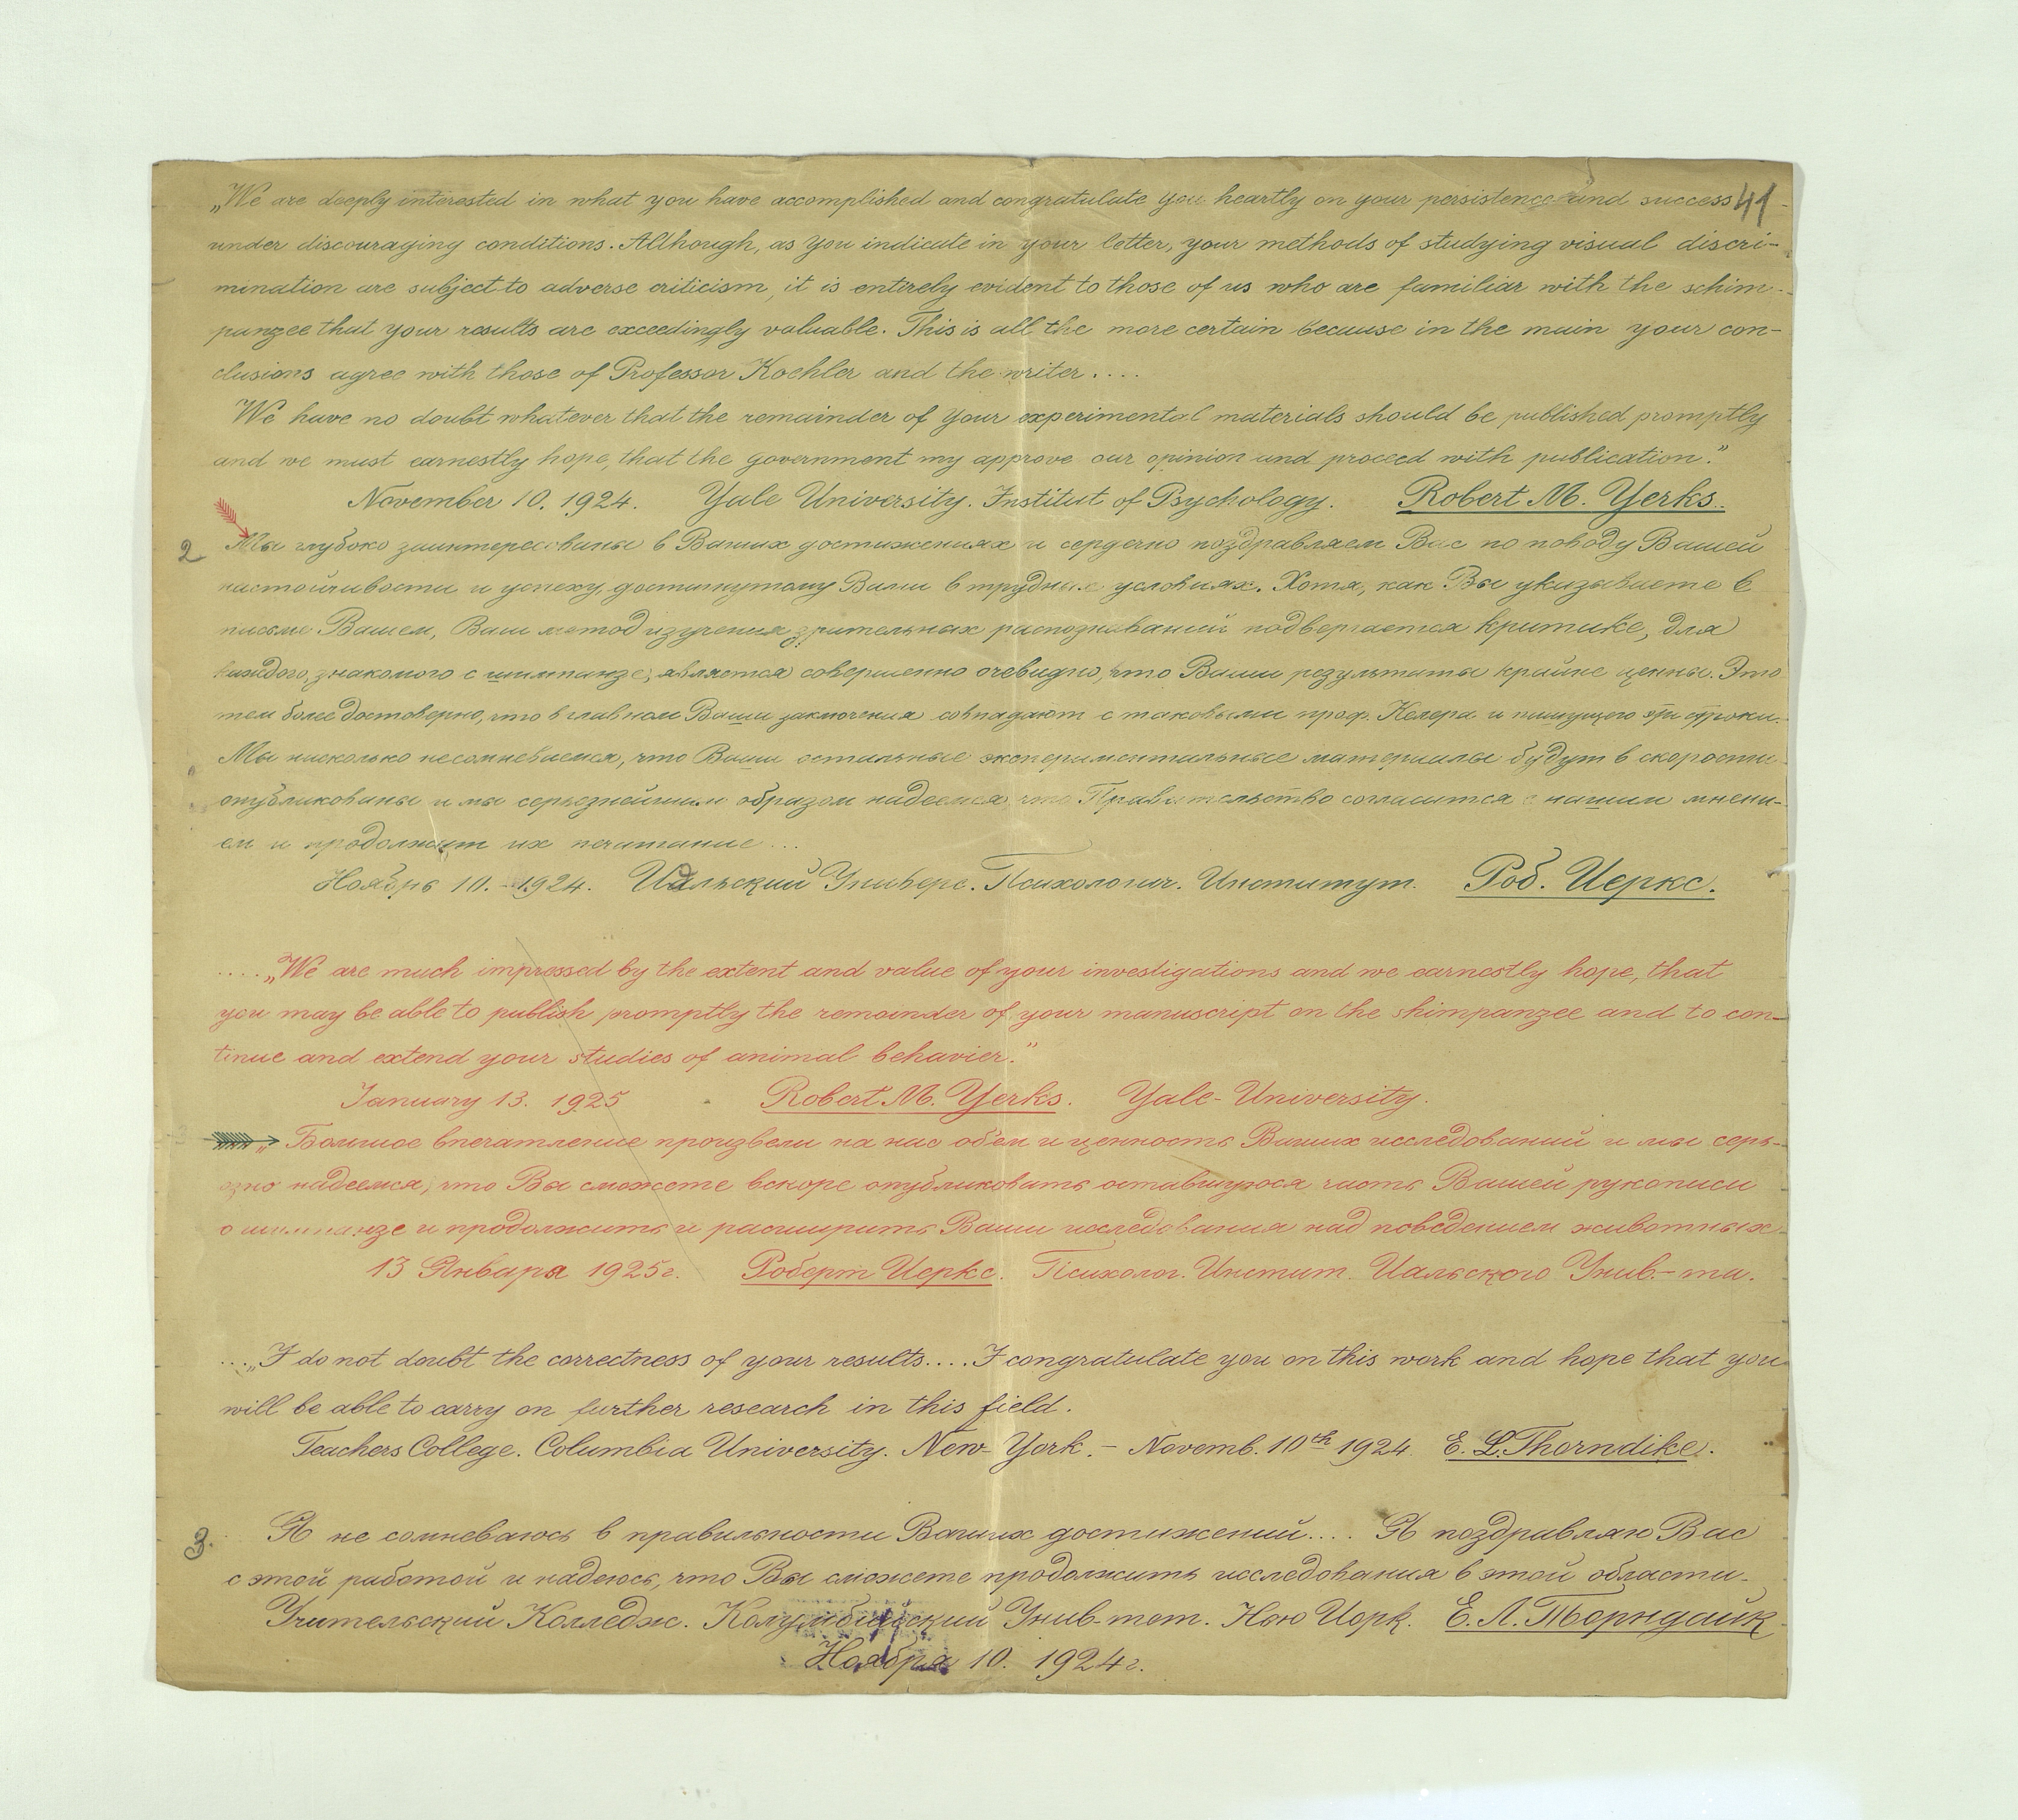 „We are deeply interested in what you have accomplished and congratulate you heartly on your persistence and success 41
under discouraging conditions. Although, as you indicate in your letter, your methods of studying visual discri-
mination are subject to adverse criticism, it is entirely evident to those of us who are familiar with the schim-
panzee that your results are exceedingly valuable. This is all the more certain because in the main your con-
clusions agree with those of Professor Koehler and the writer....
We have no doubt whatever that the remainder of your experimental materials should be published promptly
and we must earnestly hope, that the government my approve our opinion and proceed with publication."
November 10. 1924. Yale University. Institut of Psychology. Robert M. Yerks.
2 Мы глубоко заинтересованы в Ваших достижениях и сердечно поздравляем Вас по поводу Вашей
настойчивости и успеху, достигнутому Вами в трудных условиях. Хотя, как Вы указываете в
письме Вашем, Ваш метод изучения зрительных распознаваний подвергается критике, для
каждого, знакомого с шимпанзе, является совершенно очевидно, что Ваши результаты крайне ценны. Это
тем более достоверно, что в главном Ваши заключения совпадают с таковыми проф. Келера и пишущего эти строки.
Мы нисколько несомневаемся, что Ваши остальные экспериментальные материалы будут в скорости
опубликованы и мы серьезнейшим образом надеемся, что Правительство согласится с нашим мнени-
ем и продолжит их печатание...
Ноябрь 10. 1924. Иальский Универс. Психологич. Институт. Роб. Иеркс.
....„We are much impressed by the extent and value of your investigations and we earnestly hope, that
you may be able to publish promptly the remainder of your manuscript on the shimpanzee and to con-
tinue and extend your studies of animal behavier."
January 13. 1925 Robert M. Yerks. Yale-University.
„Большое впечатление произвели на нас обем и ценность Ваших исследований и мы серь-
езно надеемся, что Вы сможете вскоре опубликовать оставшуюся часть Вашей рукописи
о шимпанзе и продолжить и расширить Ваши исследования над поведением животных.
13 Января 1925г. Роберт Иеркс. Психолог. Инстит. Иальского Унив.-та.
...„I do not doubt the correctness of your results.... I congratulate you on this work and hope that you
will be able to carry on further research in this field.
Teachers College. Columbia University. New-York. - Novemb. 10th 1924. E. L. Thorndike.
3. Я не сомневаюсь в правильности Ваших достижений.... Я поздравляю Вас
с этой работой и надеюсь, что Вы сможете продолжить исследования в этой области.
Учительский Колледж. Колумбийский Унив-тет. Нью Иорк. Е. Л. Торндайк
Ноября 10. 1924г.